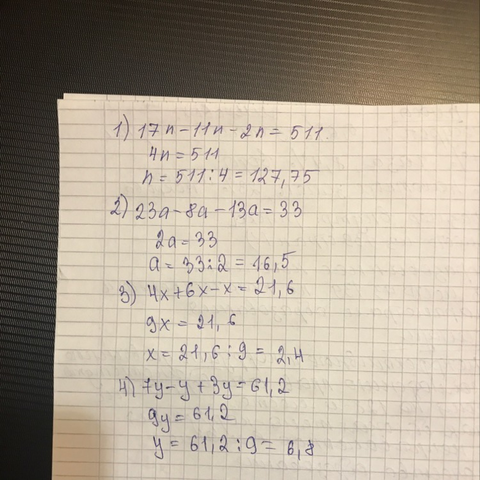 1) 17n-11n-2n=511
4n=511
n=511:4=127,75
2) 23a-8a-13a=33
2a=33
a=33:2=16,5
3) 4x+6x-x=21,6
9x=21,6
x=21,6:9=2,4
4) 7y-y+3y=61,2
9y=61,2
y=61,2:9=6,8